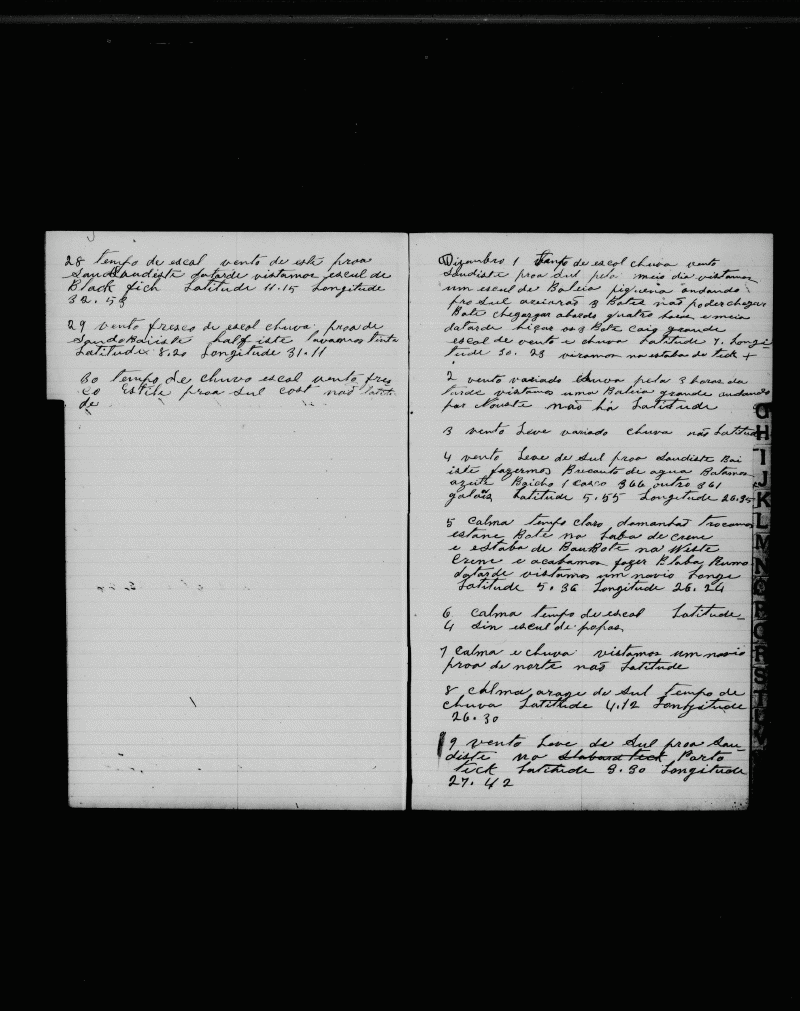 28 tempo de escal vento de este proa
SaudSaudiste datarde vistamos escul de
Black fich Latitude 11.15 Longitude
32.53
29 vento fresco de escol chuva proa de
half iste lavamos tinta
Latitude 8.20 Longitude 31.11
30 tempo de chuva escal vento fres
co Estite proa Sul cost não latitu
de
Dizambro 1 tempo de escol chuva vento
Saudiste proa Sul pelo meio dia vistamos
um escul de Baleia piquena andando
pro Sul arriarão 3 Botes não poder chegar
Bote chegar abordo quatro horas e meia
datarde Caiq grande
escal de vento e chuva Latitude 7. Longi
tude 30.23 viramos na estaba de tick +
2 vento variado chuva pela 3 horas da
tarde vistamos uma Baleia grande andando
par Nouste não há Latitude
3 vento Leve variado chuva não Latitude
4 vento Leve de Sul proa Saudiste Bai
iste fazermos de agua Batamos
azeite Baicho 1 casco 366 outro 361
galoãs Latitude 5.55 Longitude 26.35
5 Calma tempo claro damanhã trocamos
estane Bote na Laba de crene
e estaba de BauBote na Weste
Crene e acabamos fazer Blaba Rumo
datarde vistamos um navio Longe
Latitude 5.36 Longitude 26.24
6 calma tempo de escal Latitude
4 Sin escul de popas
7 Calma e chuva vistamos um navio
proa de norte não Latitude
8 calma arage de Sul tempo de
chuva Latitude 4.12 Longitude
26.30
9 vento Leve de Sul proa Sau
diste no Stabard teck Porto
tick Latitude 3.30 Longitude
27.42
G
H
I
J
K
L
M
N
O
P
Q
R
S
T